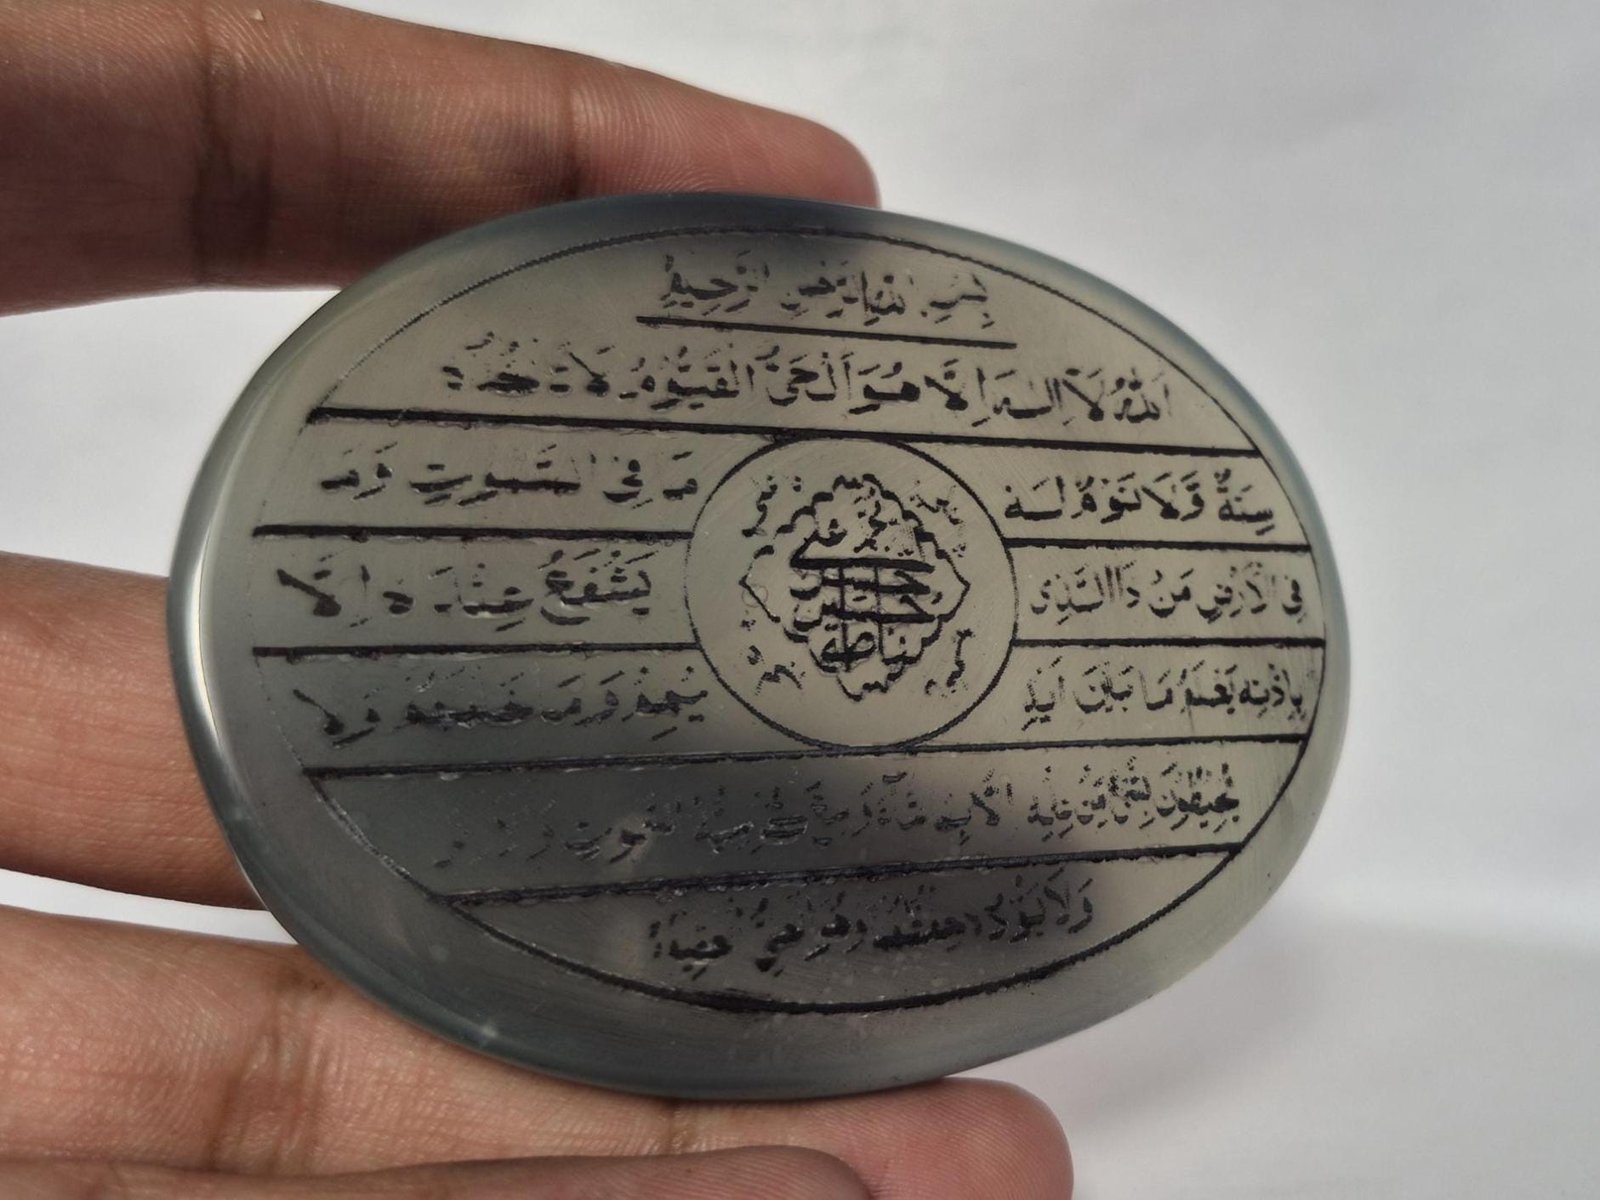 بِسْمِ اللهِ الرَّحْمنِ الرَّحِيمِ
اَللهُ لَا اِلهَ اِلَّا هُوَ اَلْحَيُّ الْقَيُّوْمُ لَا تَأخُذُهُ
سِنَةٌ وَّلَا نَوْمٌ لَهُ مَا فِي السَّموتِ وَمَا
فِي الْاَرْضِ مَنْ ذَا الَّذِي يَشْفَعُ عِنْدَهُ اِلَّا
بِاِذْنِه يَعْلَمُ مَا بَيْنَ اَيْدِ يْهِمْ وَمَا خَلْفَهُمْ وَلَا
يُحِيطُونَ بِشَيْءٍ مِّنْ عِلْمِه اِلَّا بِمَا شَآءَ وَسِعَ كُرْسِيُّهُ السَّموتِ
وَلَا يَؤُدُهُ حِفْظُهُمَا وَهُوَ الْعَلِيُّ الْعَظِيمُ
محمد علي
حسن
حسين
فاطمة